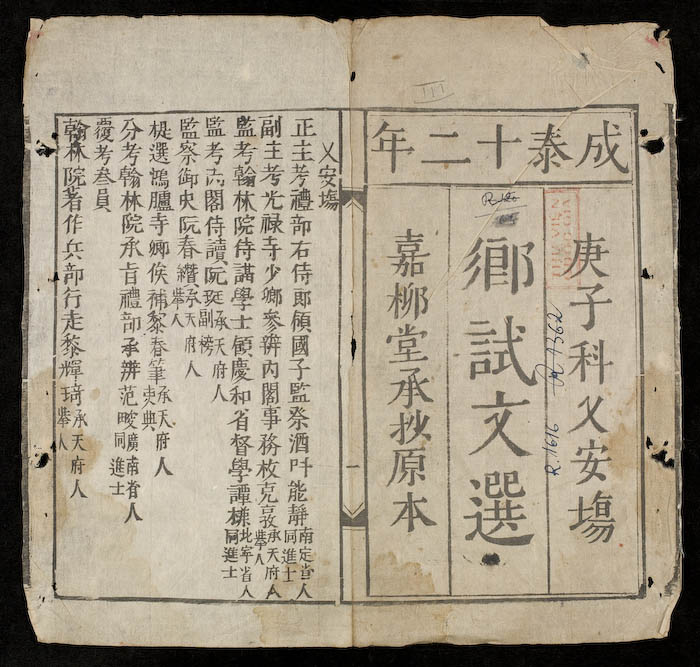 成泰十二年
庚子科乂安塲
鄉試文選
嘉柳堂承抄原本
R.1616
乂安塲
正主考禮部右侍郎領國子監祭酒 能靜南定省人同進士
副主考光禄寺少卿參辦内閣事務枚克敦承天府人舉人
監考翰林院侍講學士領慶和省督學譚 北寧省人同進士
監考 閣侍讀阮 承天府人副榜
監察御史阮春 承天府人舉人
提選鴻臚寺卿候補黎春筆承天府人吏典
分考翰林院承旨禮部承辨范 廣南省人同進士
覆考叁員
翰林院著作兵部行走黎輝琦承天府人舉人
一